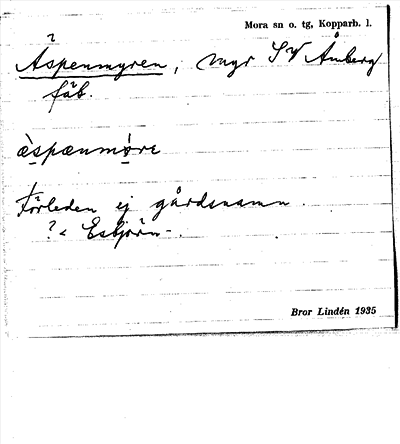 Mora sn o. tg, Kopparb. l.
Äspenmyren, myr SV Åmberg
fäb.
æ̀spænmỳre
Förleden ej gårdsnamn.
? < Esbjörn-.
Bror Lindén 1935